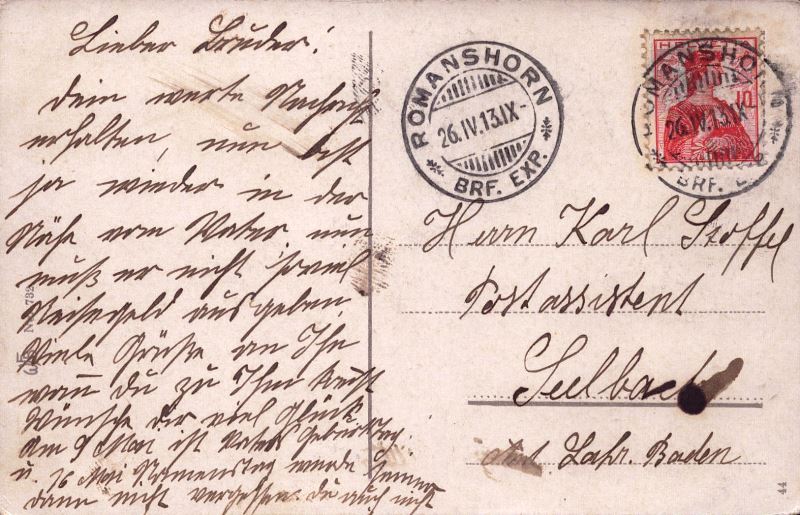 Lieber Bruder!
Dein werte Nachricht
erhalten, nun bist
ja wieder in der
Nähe vom Vater nun
muß er nicht soviel
Reisegeld ausgeben.
Viele Grüße an Ihn
wan du zu Ihm
Wünsche dir viel Glück
Am 9 Mai ist Vater Geburtstag
u. 16 Mai Namenstag werde seiner
dann nicht vergessen. du auch nicht
ROMANSHORN
26.IV.13.IX-
BRF. EXP.
HELVETIA
10
ROMANSHORN
26.IV.13.IX
BRF. E
Herrn Karl Stoffel
Postassistent
Seelbach
Amt Lahr. Baden
No 732
44